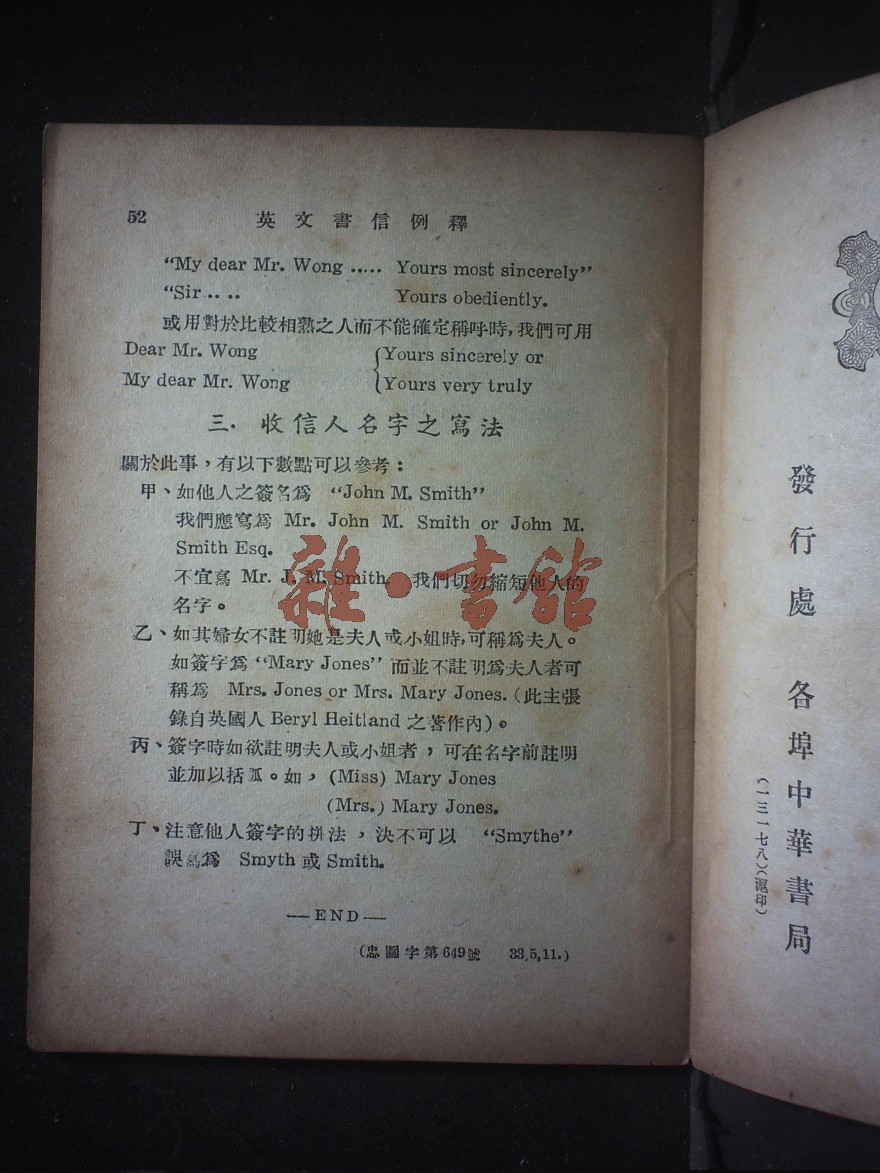 52 英文書信例釋
“My dear Mr. Wong ..... Yours most sincerely”
“Sir.. .. Yours obediently.
或用對於比較相熟之人而不能確定稱呼時,我們可用
Dear Mr. Wong {Yours sincerely or
My dear Mr. Wong {Yours very truly
三. 收信人名字之寫法
關於此事,有以下數點可以參考:
甲、如他人之簽名爲 “John M. Smith”
我們應寫爲 Mr. John M. Smith or John M.
Smith Esq.
不宜寫 Mr. J. M. Smith. 我們切勿縮短他人的
名字。
乙、如其婦女不註明她是夫人或小姐時,可稱爲夫人。
如簽字爲“Mary Jones” 而並不註明爲夫人者可
稱爲 Mrs. Jones or Mrs. Mary Jones.(此主張
錄自英國人 Beryl Heitland 之著作內)。
丙、簽字時如欲註明夫人或小姐者,可在名字前註明
並加以括弧。如,(Miss) Mary Jones
(Mrs.) Mary Jones.
丁、注意他人簽字的拼法,決不可以 “Smythe”
誤寫爲 Smyth 或 Smith.
—END—
(忠圖字第649號 33,5,11.)
雜·書館
發行處 各埠中華書局
(一三一七八)(滬印)